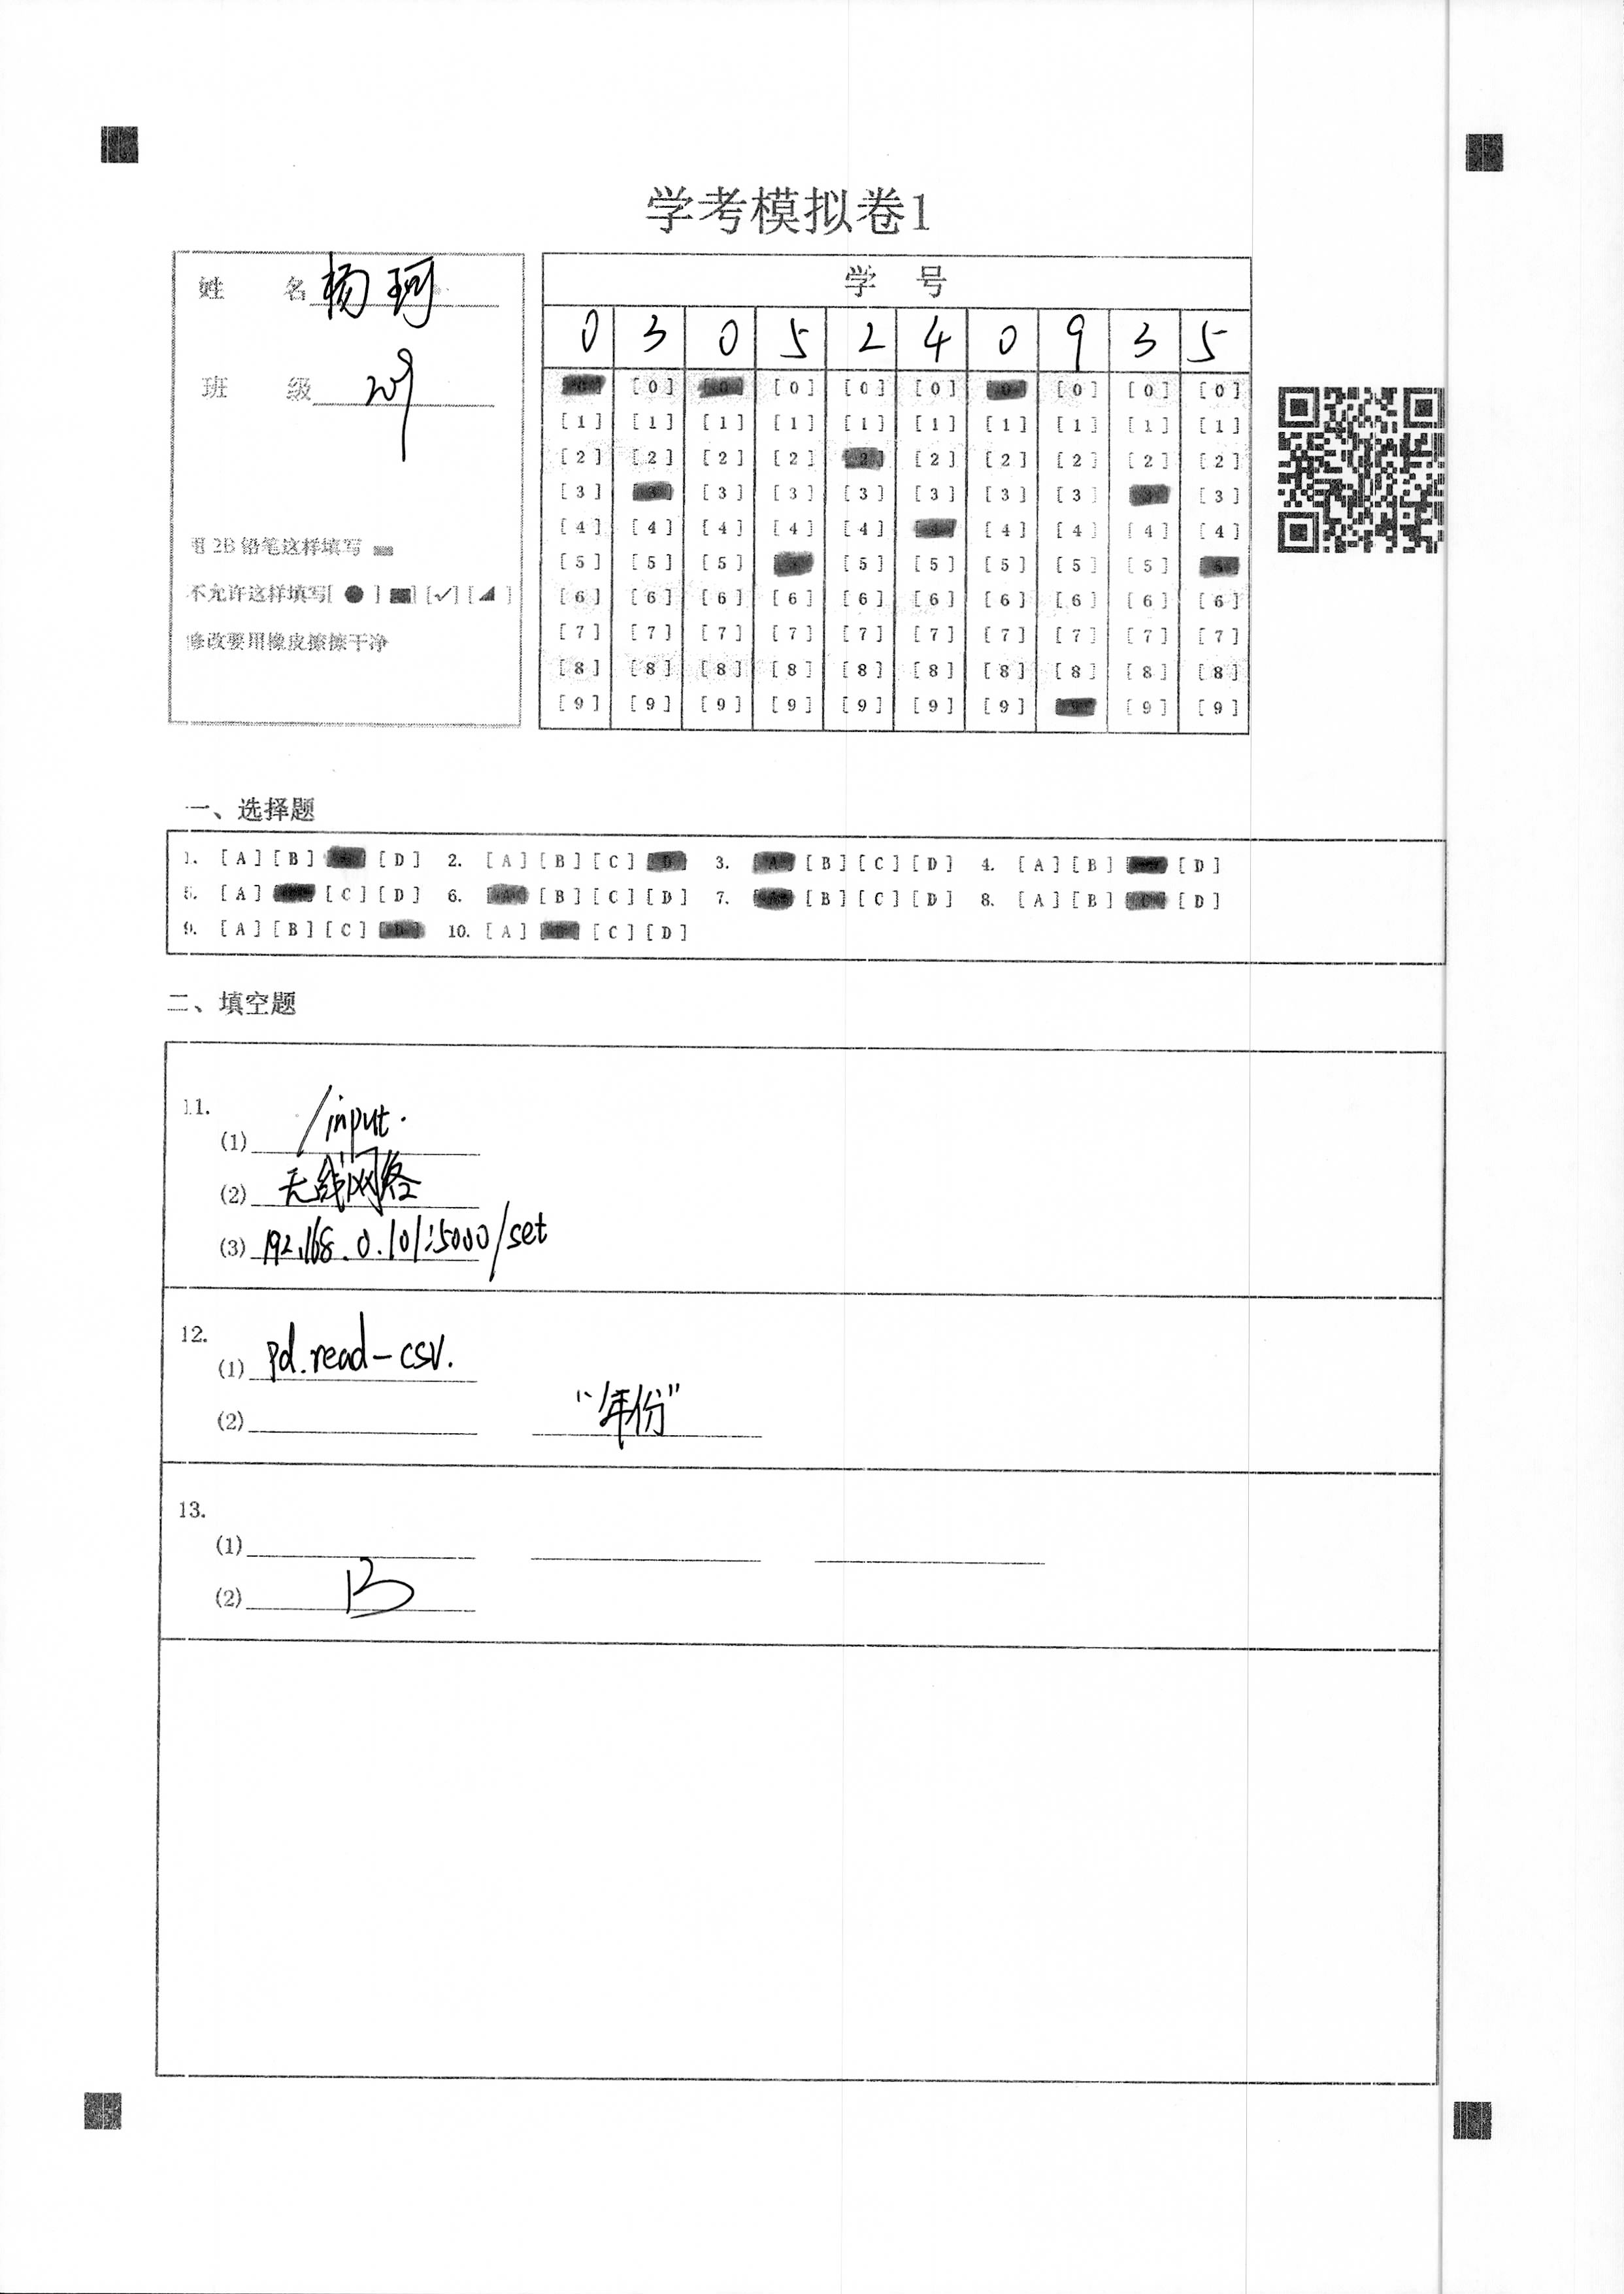 学考模拟卷1
姓 名 杨珂
班 级
用2B铅笔这样填写
不允许这样填写[ ● ] [■] [✓] [◢ ]
修改要用橡皮擦擦干净
学 号
0 3 0 5 2 4 0 9 3 5
[0] [0] [0] [0] [0] [0] [0] [0] [0] [0]
[1] [1] [1] [1] [1] [1] [1] [1] [1] [1]
[2] [2] [2] [2] [2] [2] [2] [2] [2] [2]
[3] [3] [3] [3] [3] [3] [3] [3] [3] [3]
[4] [4] [4] [4] [4] [4] [4] [4] [4] [4]
[5] [5] [5] [5] [5] [5] [5] [5] [5] [5]
[6] [6] [6] [6] [6] [6] [6] [6] [6] [6]
[7] [7] [7] [7] [7] [7] [7] [7] [7] [7]
[8] [8] [8] [8] [8] [8] [8] [8] [8] [8]
[9] [9] [9] [9] [9] [9] [9] [9] [9] [9]
一、选择题
1. [A] [B] [C] [D] 2. [A] [B] [C] [D] 3. [A] [B] [C] [D] 4. [A] [B] [C] [D]
5. [A] [B] [C] [D] 6. [A] [B] [C] [D] 7. [A] [B] [C] [D] 8. [A] [B] [C] [D]
9. [A] [B] [C] [D] 10. [A] [B] [C] [D]
二、填空题
11.
(1) /input.
(2) 无线网络
(3) 192.168.0.101:5000/set
12.
(1) pd.read-csv.
(2) "年份"
13.
(1)
(2) B